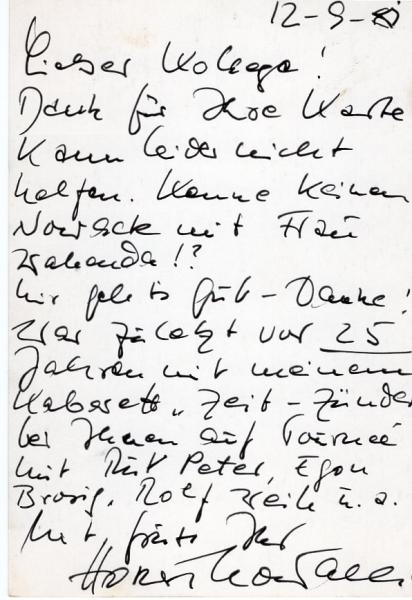 12-9-
Lieber Kollege!
Dank für Ihre Karte
Kann leider nicht
helfen. Kenne keinen
Nowack mit Frau
Wahanda!?
Mir geht es gut - Danke!
War zuletzt vor 25
Jahren mit meinem
Kabarett „Zeit-Zünder
bei Ihnen auf Tournee
mit Rut Peter, Egon
Brosig, Rolf Weih u. a.
Mit Ihr
Horst